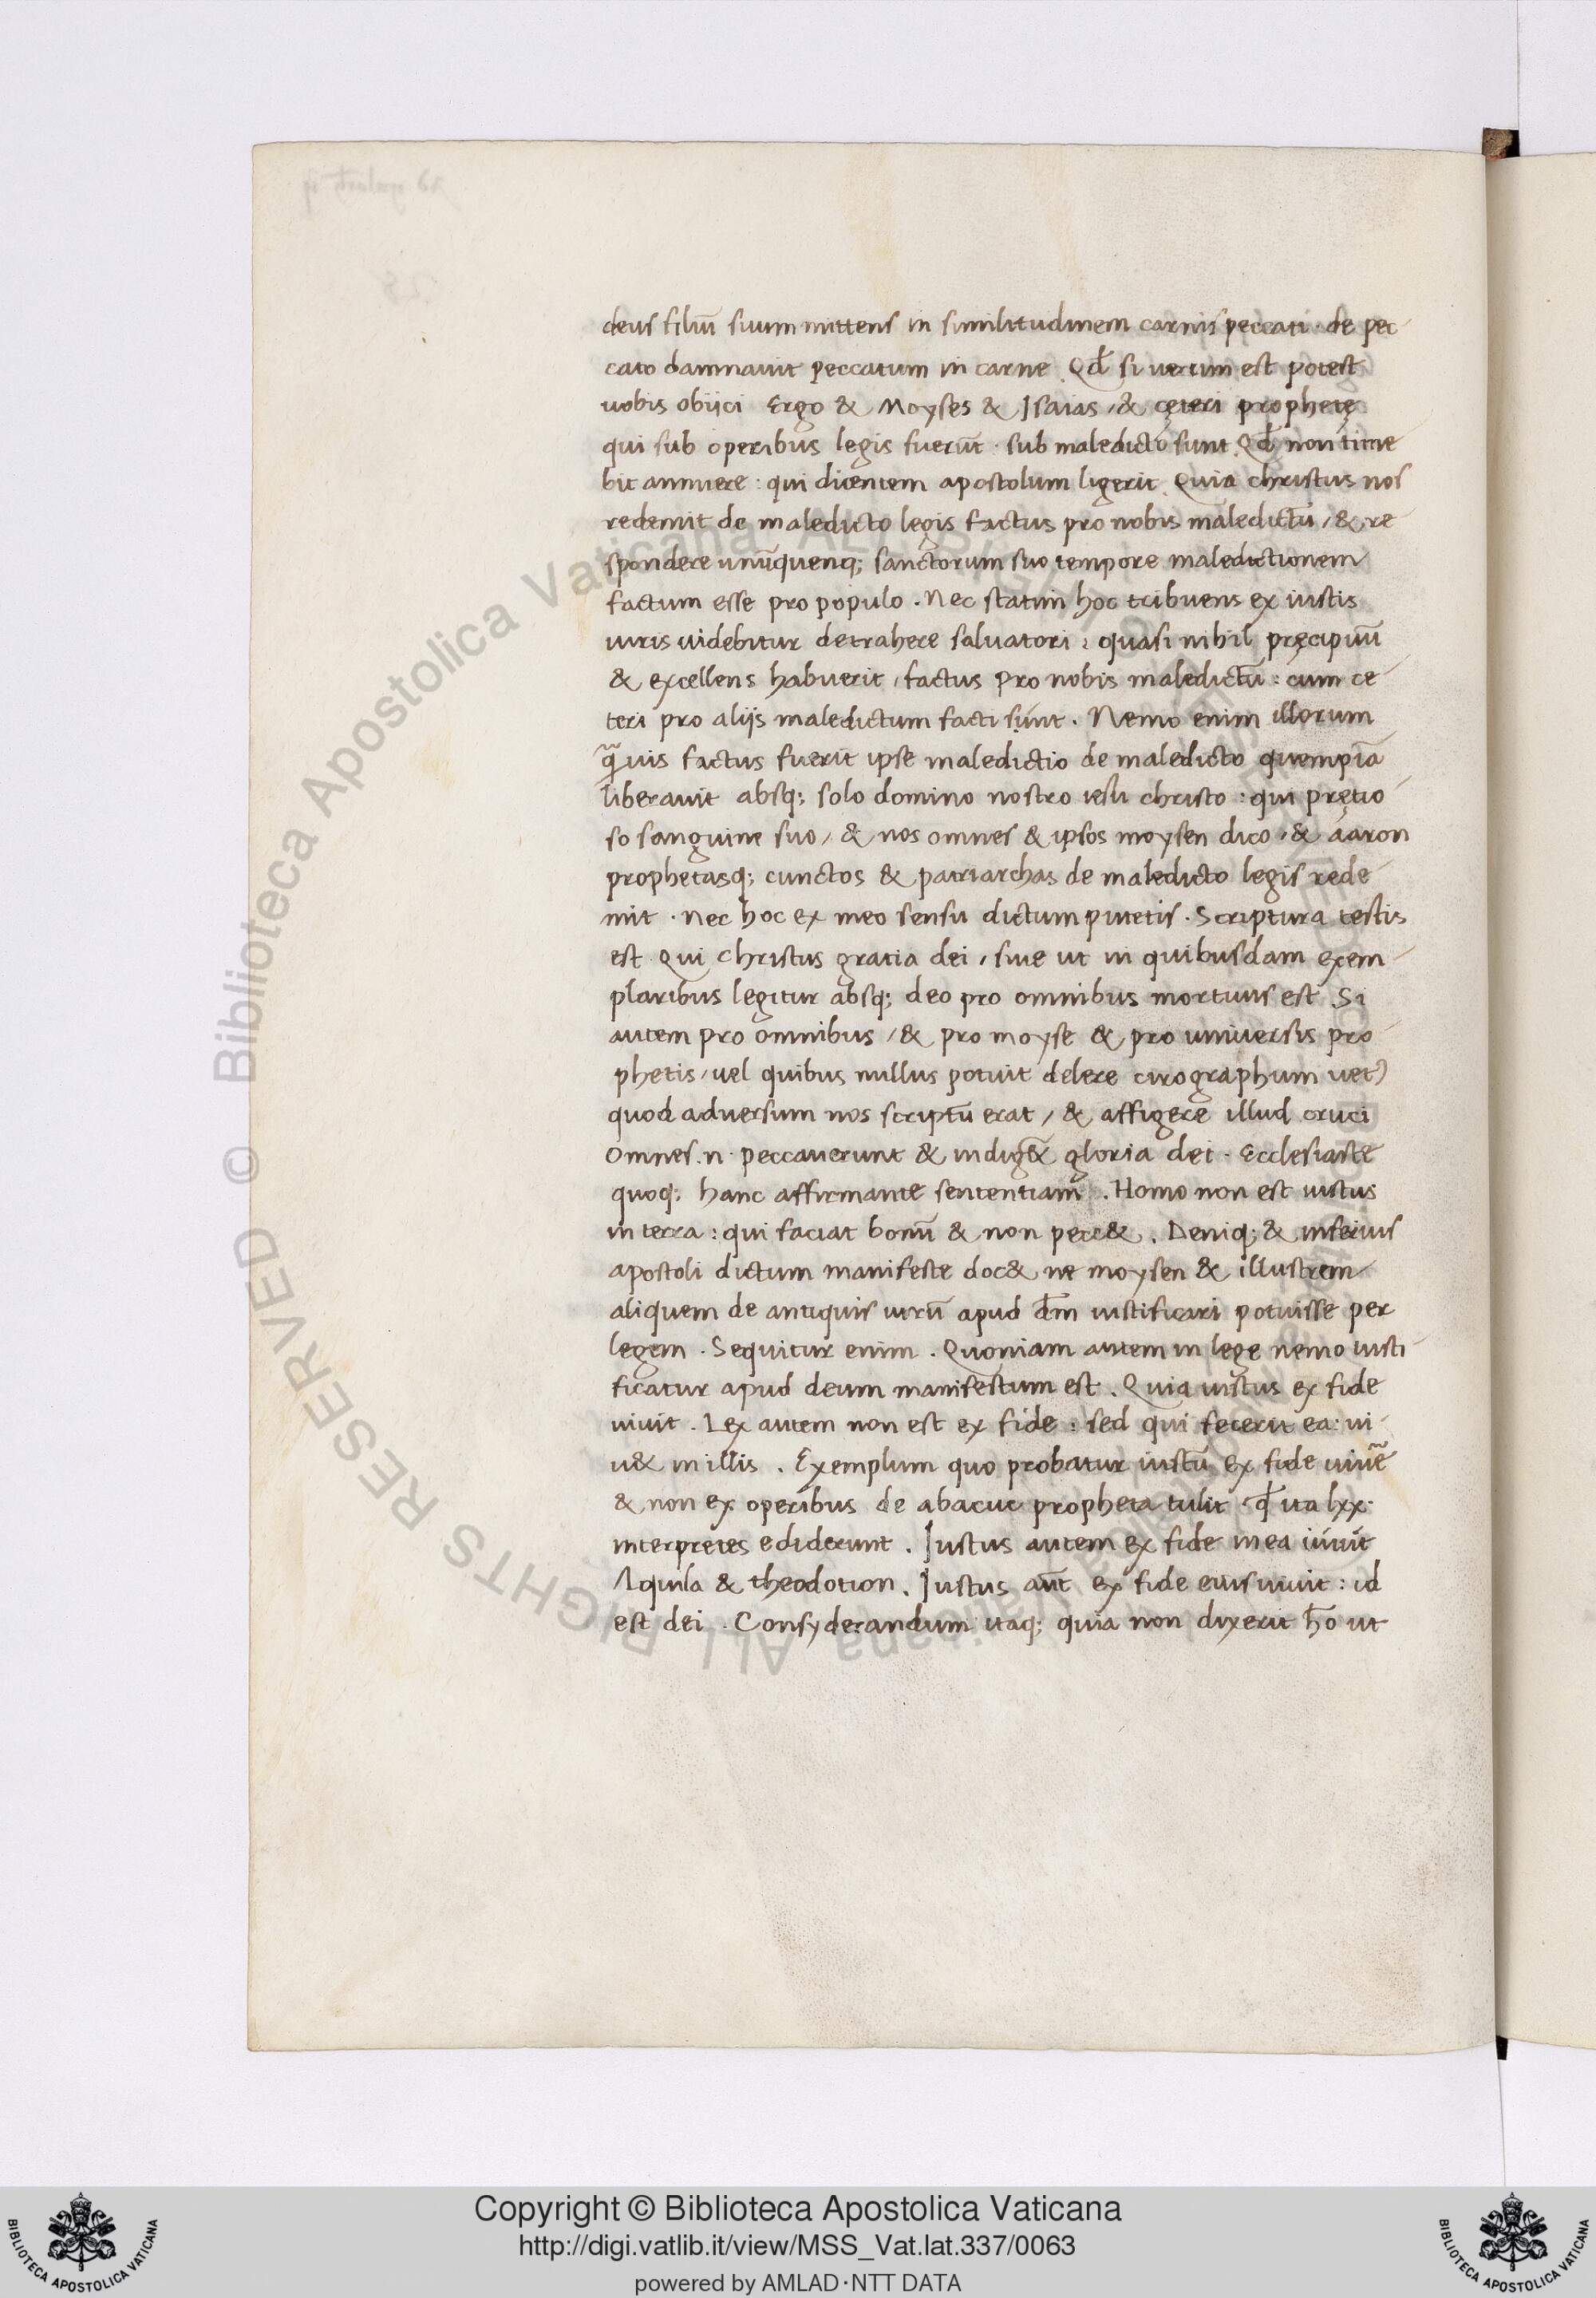 deus filiū suum mittens in similitudinem carnis peccati · de pec
cato damnauit peccatum in carne . Qđ si uerum est potest
uobis obijci Ergo & Moyses & Isaias / & cęteri prophetę
qui sub operibus legis fuerūt · sub maledicto sunt . Qđ non time
bit annuere : qui dicentem apostolum ligerit . Quia christus nos
redemit de maledicto legis factus pro nobis maledictū / & re
spondere unūquenq; sanctorum suo tempore maledictionem
factum esse pro populo . Nec statim hoc tribuens ex iustis
uiris uidebitur detrahere saluatori : quasi nihil pręcipuū
& excellens habuerit , factus pro nobis maledictū : cum ce
teri pro alijs maledictum facti sunt . Nemo enim illorum
q̃uis factus fuerit ipse maledictio de maledicto quempiā
liberauit absq; solo domino nostro iesu christo : qui prętio
so sanguine suo / & nos omnes & ipsos moysen dico / & aaron
prophetasq; cunctos & patriarchas de maledicto legis rede
mit . Nec hoc ex meo sensu dictum putetis . Scriptura testis
est Qui christus gratia dei / siue ut in quibusdam exem
plaribus legitur absq; deo pro omnibus mortuus est . Si
autem pro omnibus / & pro moyse & pro uniuersis pro
phetis / uel quibus nullus potuit delere cirographum uet)
quod aduersum nos scriptū erat / & affigere illud cruci
Omnes .n. peccauerunt & indig&̄ gloria dei . Ecclesiaste
quoq; hanc affirmante sententiam . Homo non est iustus
in terra : qui faciat bonū & non pecc& . Deniq; & inferius
apostoli dictum manifeste doc& ne moysen & illustrem
aliquem de antiquis uirū apud dm̄ iustificari potuisse per
legem . Sequitur enim . Quoniam autem in lege nemo iusti
ficatur apud deum manifestum est . Quia iustus ex fide
uiuit . Lex autem non est ex fide : sed qui fecerit ea : ui
u& in illis . Exemplum quo probatur iustū ex fide uiuẽ
& non ex operibus de abacuc propheta tulit · qđ ita lxx ·
interpretes ediderunt . Iustus autem ex fide mea uiuit
Aquila & theodotion . Iustus aūt ex fide eius uiuit : id
est dei . Consyderandum itaq; quia non dixerit ho̅ ut
© Biblioteca Apostolica Vaticana ALL RIGHTS RESERVED
Copyright © Biblioteca Apostolica Vaticana
http://digi.vatlib.it/view/MSS_Vat.lat.337/0063
powered by AMLAD·NTT DATA
BIBLIOTECA APOSTOLICA VATICANA
BIBLIOTECA APOSTOLICA VATICANA